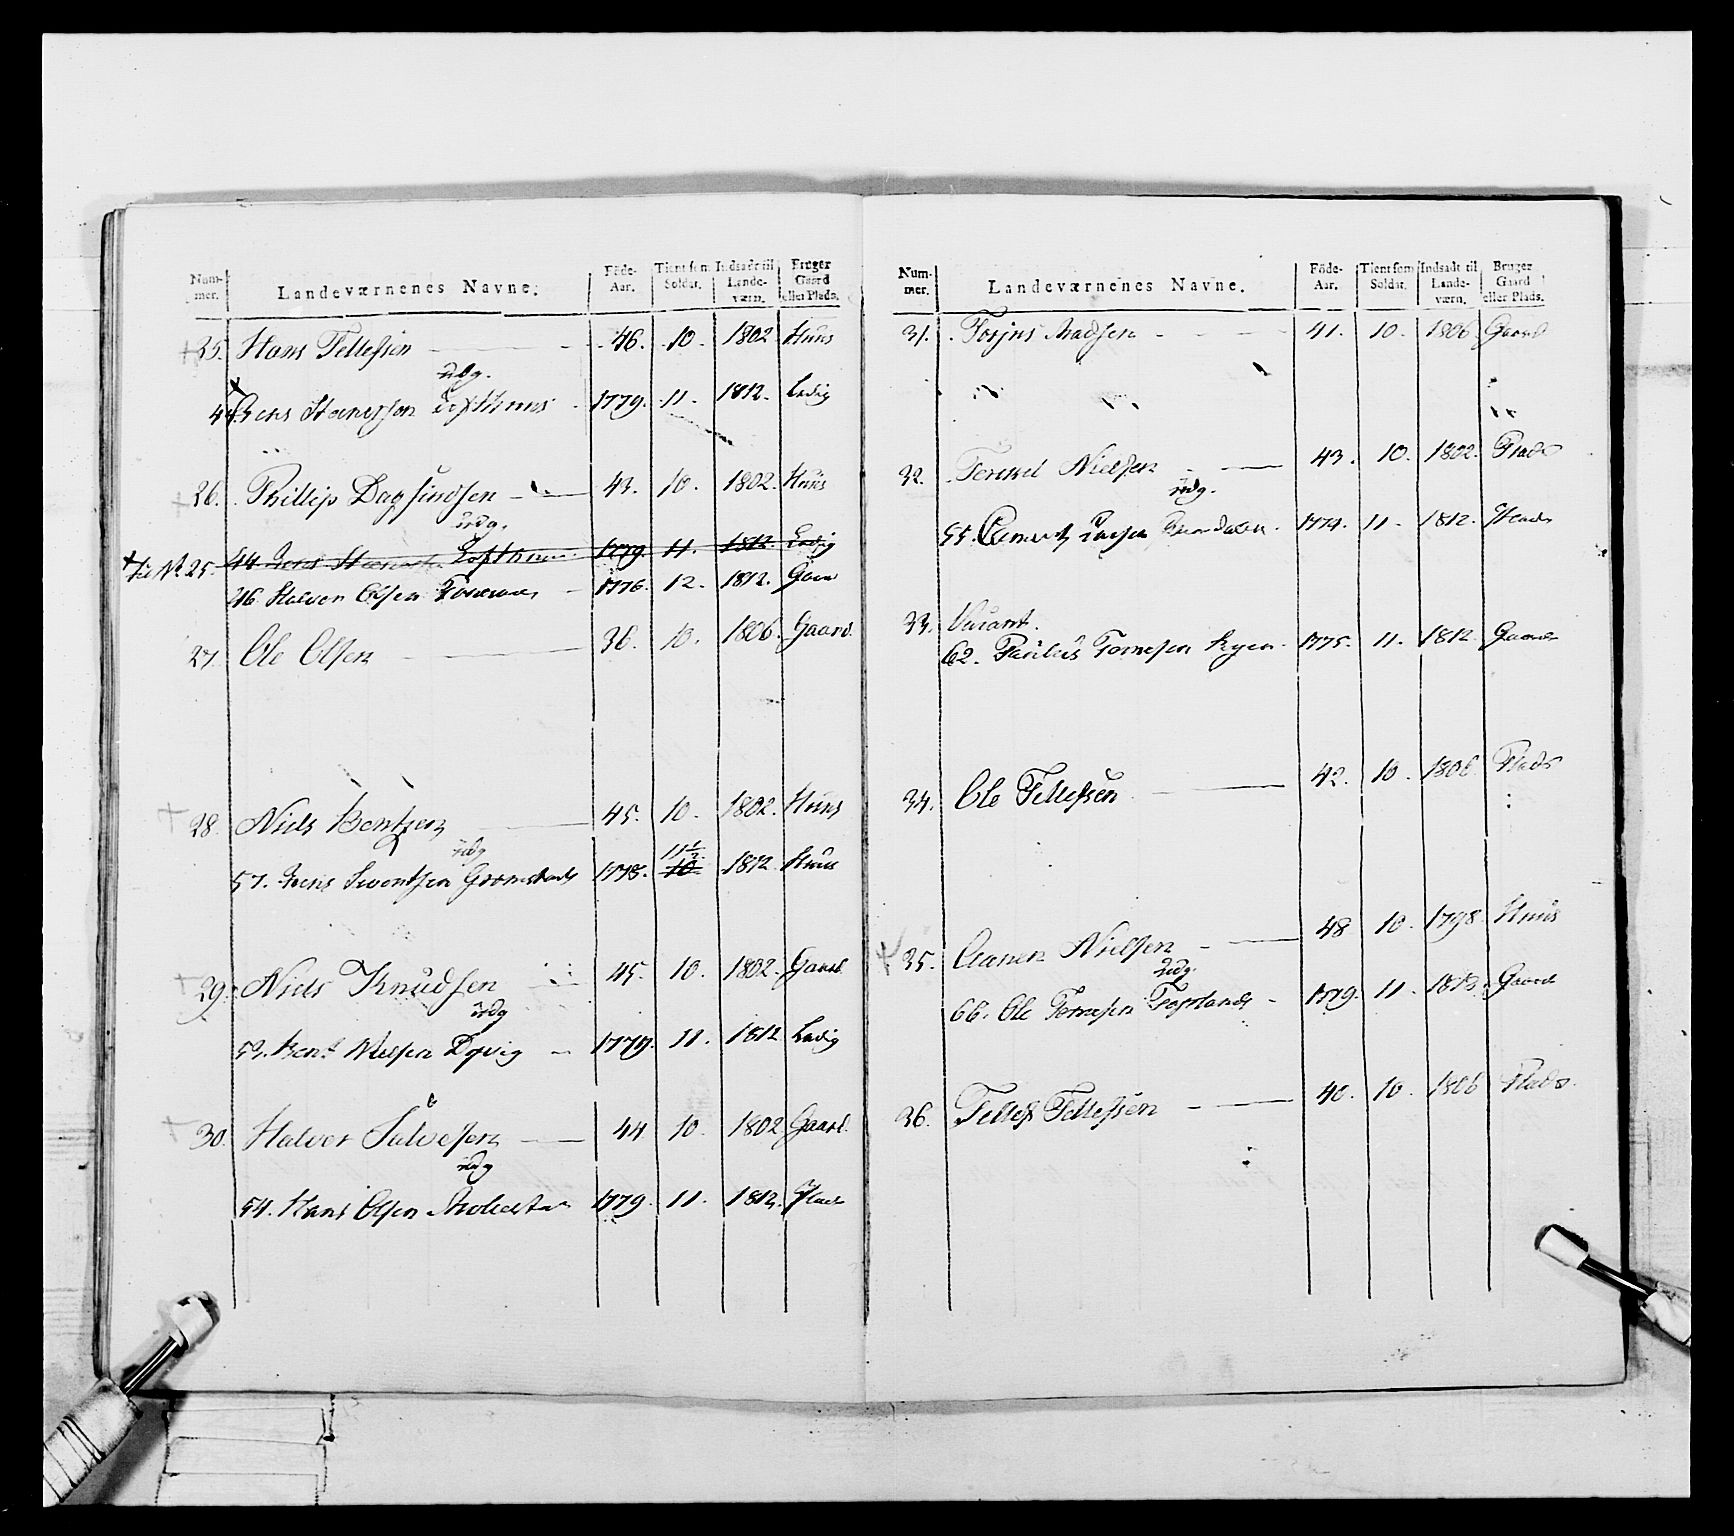 Num-mer. Landeværnenes Navne. Föde-Aar. Tient som Soldat. Indsadt til Lande-værn. Bruger Gaard eller Plads.
25. Hans Tellefsen 46. 10. 1802 Huus
udg.
44. Jens Hansen Lofthuus 1779. 11. 1812. Ledig
26. Phillip Dagfindsen 43. 10. 1802. Huus
udg.
til No 25. 44 Jens Lofthuus 1779. 11. 1812. Ledig
46. Halvor Olsen 1776. 12. 1812. Gaard
27. Ole Olsen 36. 10. 1806. Gaard.
28. Niels Bentzen 45. 10. 1802. Huus
udg
57. Jens Sventsen Groomstads 1778. 11½ 10 1812. Huus
29. Niels Knudsen 45. 10. 1802. Gaard
udg
53. Bent Nielsen Dovig 1779. 11. 1812 Ledig
30. Halvor Salvesen 44 10. 1802 Gaard.
udg
54. Hans Olsen 1779. 11. 1812. Plads
Num-mer. Landeværnenes Navne. Föde-Aar. Tient som Soldat. Indsadt til Lande-værn. Bruger Gaard eller Plads.
31. Torjus Madsen 41. 10. 1806 Gaard
32. Terkel Nielsen 43. 10. 1802. Plads
udg.
55. 1774. 11. 1812. Plads
33. Vacant.
62. Paulus Tomesen 1775. 11. 1812 Gaard
34. Ole Tellefsen 42. 10. 1806. Plads
35. Aanen Nielsen 48 10. 1798 Huus
udg.
66. Ole Tomesen 1779. 11 1812. Gaard
36. Tellef Tellefsen 40. 10. 1806 Plads.